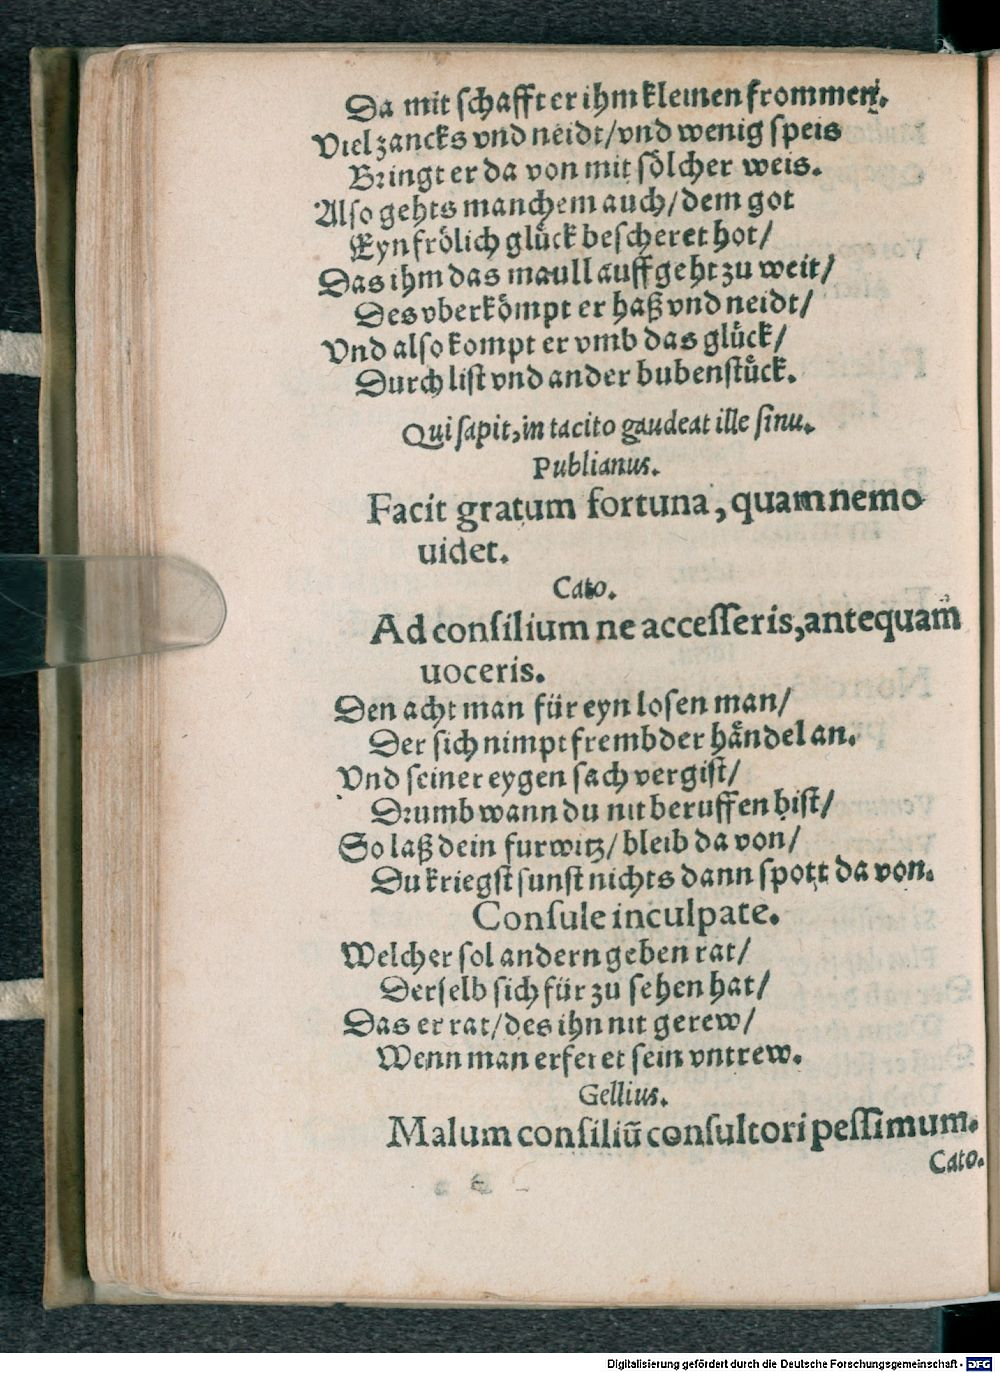 Da mit schafft er ihm kleinen frommen.
Viel zancks vnd neidt/vnd wenig speis
Bringt er da von mit sölcher weis.
Also gehts manchem auch/dem got
Eyn frölich glück bescheret hot/
Das ihm das maull auff geht zu weit/
Des vberkömpt er haß vnd neidt/
Vnd also kompt er vmb das glück/
Durch list vnd ander bubenstück.
Qui sapit, in tacito gaudeat ille sinu.
Publianus.
Facit gratum fortuna, quam nemo
uidet.
Cato.
Ad consilium ne accesseris, antequam
uoceris.
Den acht man für eyn losen man/
Der sich nimpt frembder händel an.
Vnd seiner eygen sach vergist/
Drumb wann du nit beruffen bist/
So laß dein furwitz/bleib da von/
Du kriegst sunst nichts dann spott da von.
Consule inculpate.
Welcher sol andern geben rat/
Derselb sich für zu sehen hat/
Das er rat/des ihn nit gerew/
Wenn man erferet sein vntrew.
Gellius.
Malum consiliū consultori pessimum.
Cato.
Digitalisierung gefördert durch die Deutsche Forschungsgemeinschaft - DFG